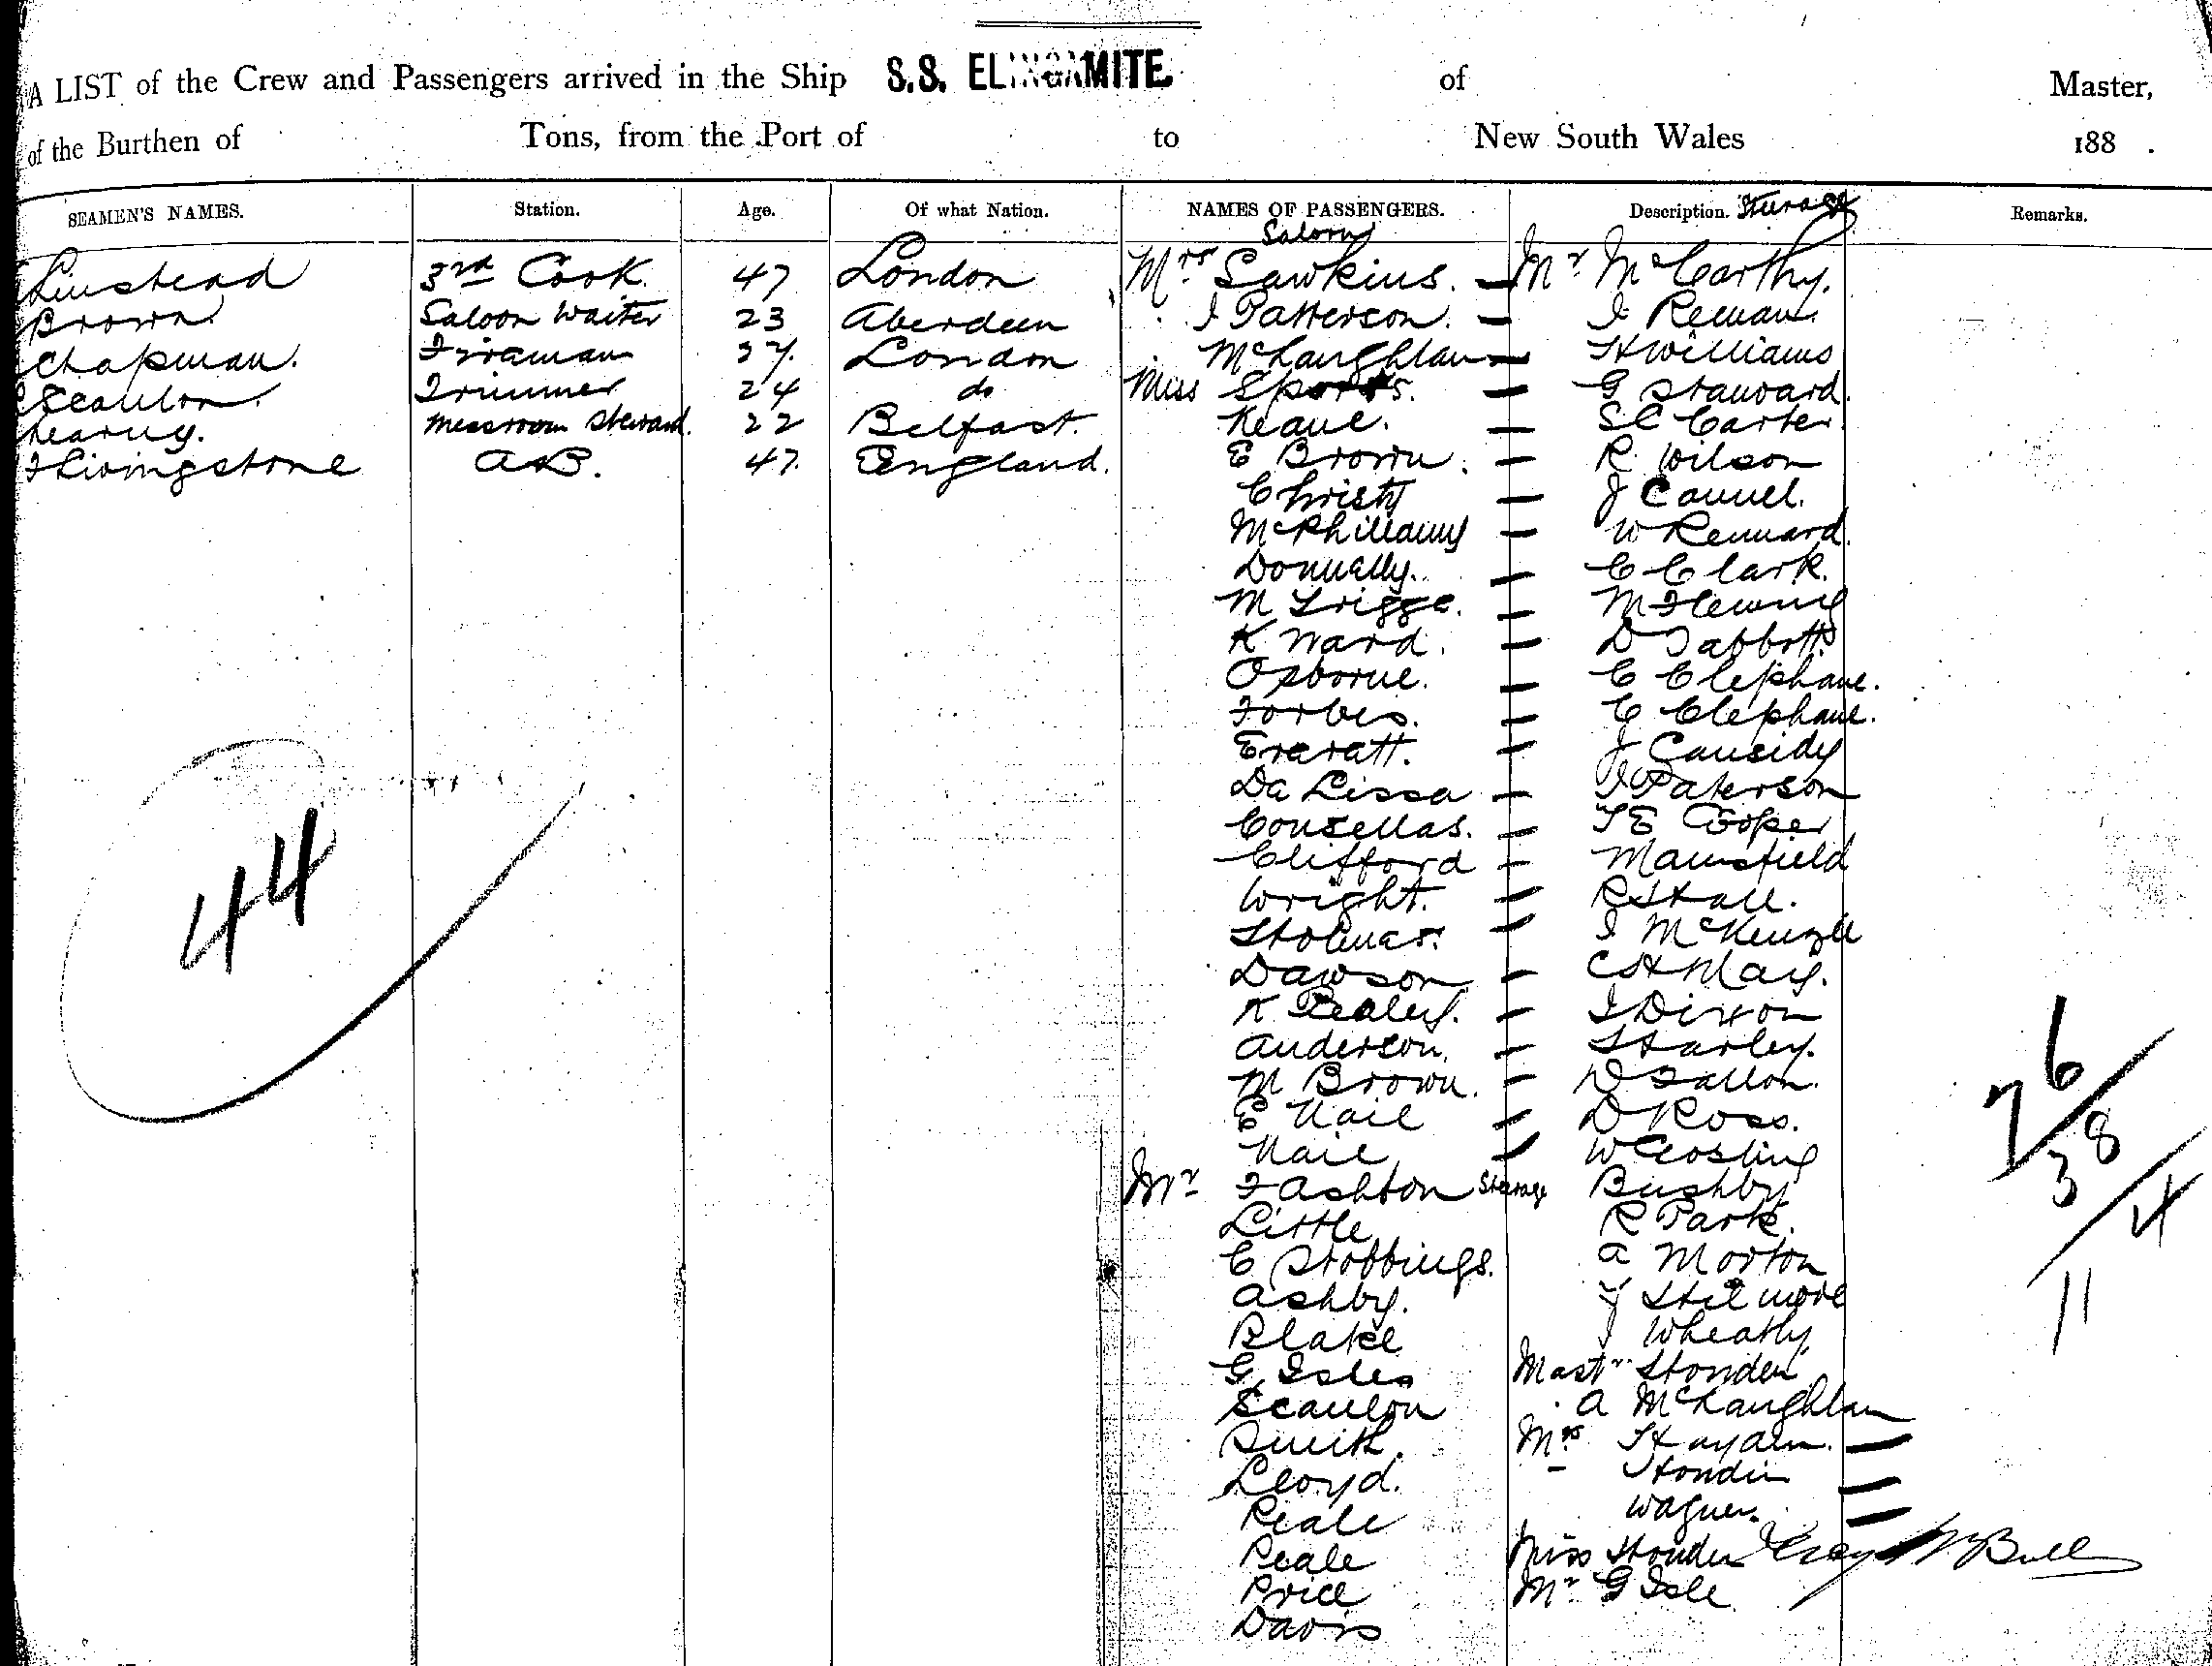 A LIST of the Crew and Passengers arrived in the Ship S.S. ELINGAMITE. of Master,
of the Burthen of Tons, from the Port of to New South Wales 188 .
SEAMEN'S NAMES. Station. Age. Of what Nation. NAMES OF PASSENGERS. Description. Steerage Remarks.
Saloon
Linstead 3rd Cook 47 London Mrs Sawkins. Mr McCarthy.
Brown Saloon Waiter 23 Aberdeen I Patterson. Reman
Chapman. Fireman London McLaughlan H Williams
Scanlon. Trimmer 24 do Miss Sports. G Stanward.
Kearny. Messroom Steward. 22 Belfast. Keane. S C Carter
Livingstone AB. 47 England. E Brown. R Wilson
Christy J Cannel.
McPhillamy W Rennard.
Donnally. C Clark.
M Triggs. M Fleming
K Ward. D Tabbott
Osborne. C Clephane.
Forbes. C Clephane.
Everatt. J Cassidy
Da Lissa Paterson
T E Cooper
Clifford Mansfield
Wright. R Hall.
Holmes. McKenzie
Dawson C H May.
K Bealey. Dixon
Anderson. Harley.
M Brown. D Fallon.
E Nail D Ross.
Nail W Gosling
Mr F Ashton Steerage Bushby
Little R Park.
C Stobbings. A Morton
Ashby. Y
Blake J Wheatly
G Isles Mastr
Scanlon A McLaughlan
Smith. Mrs Hayden.
Lloyd.
Peale Wagner.
Peale Miss
Price Mr G Isle
Davis
44
26
38
4
11